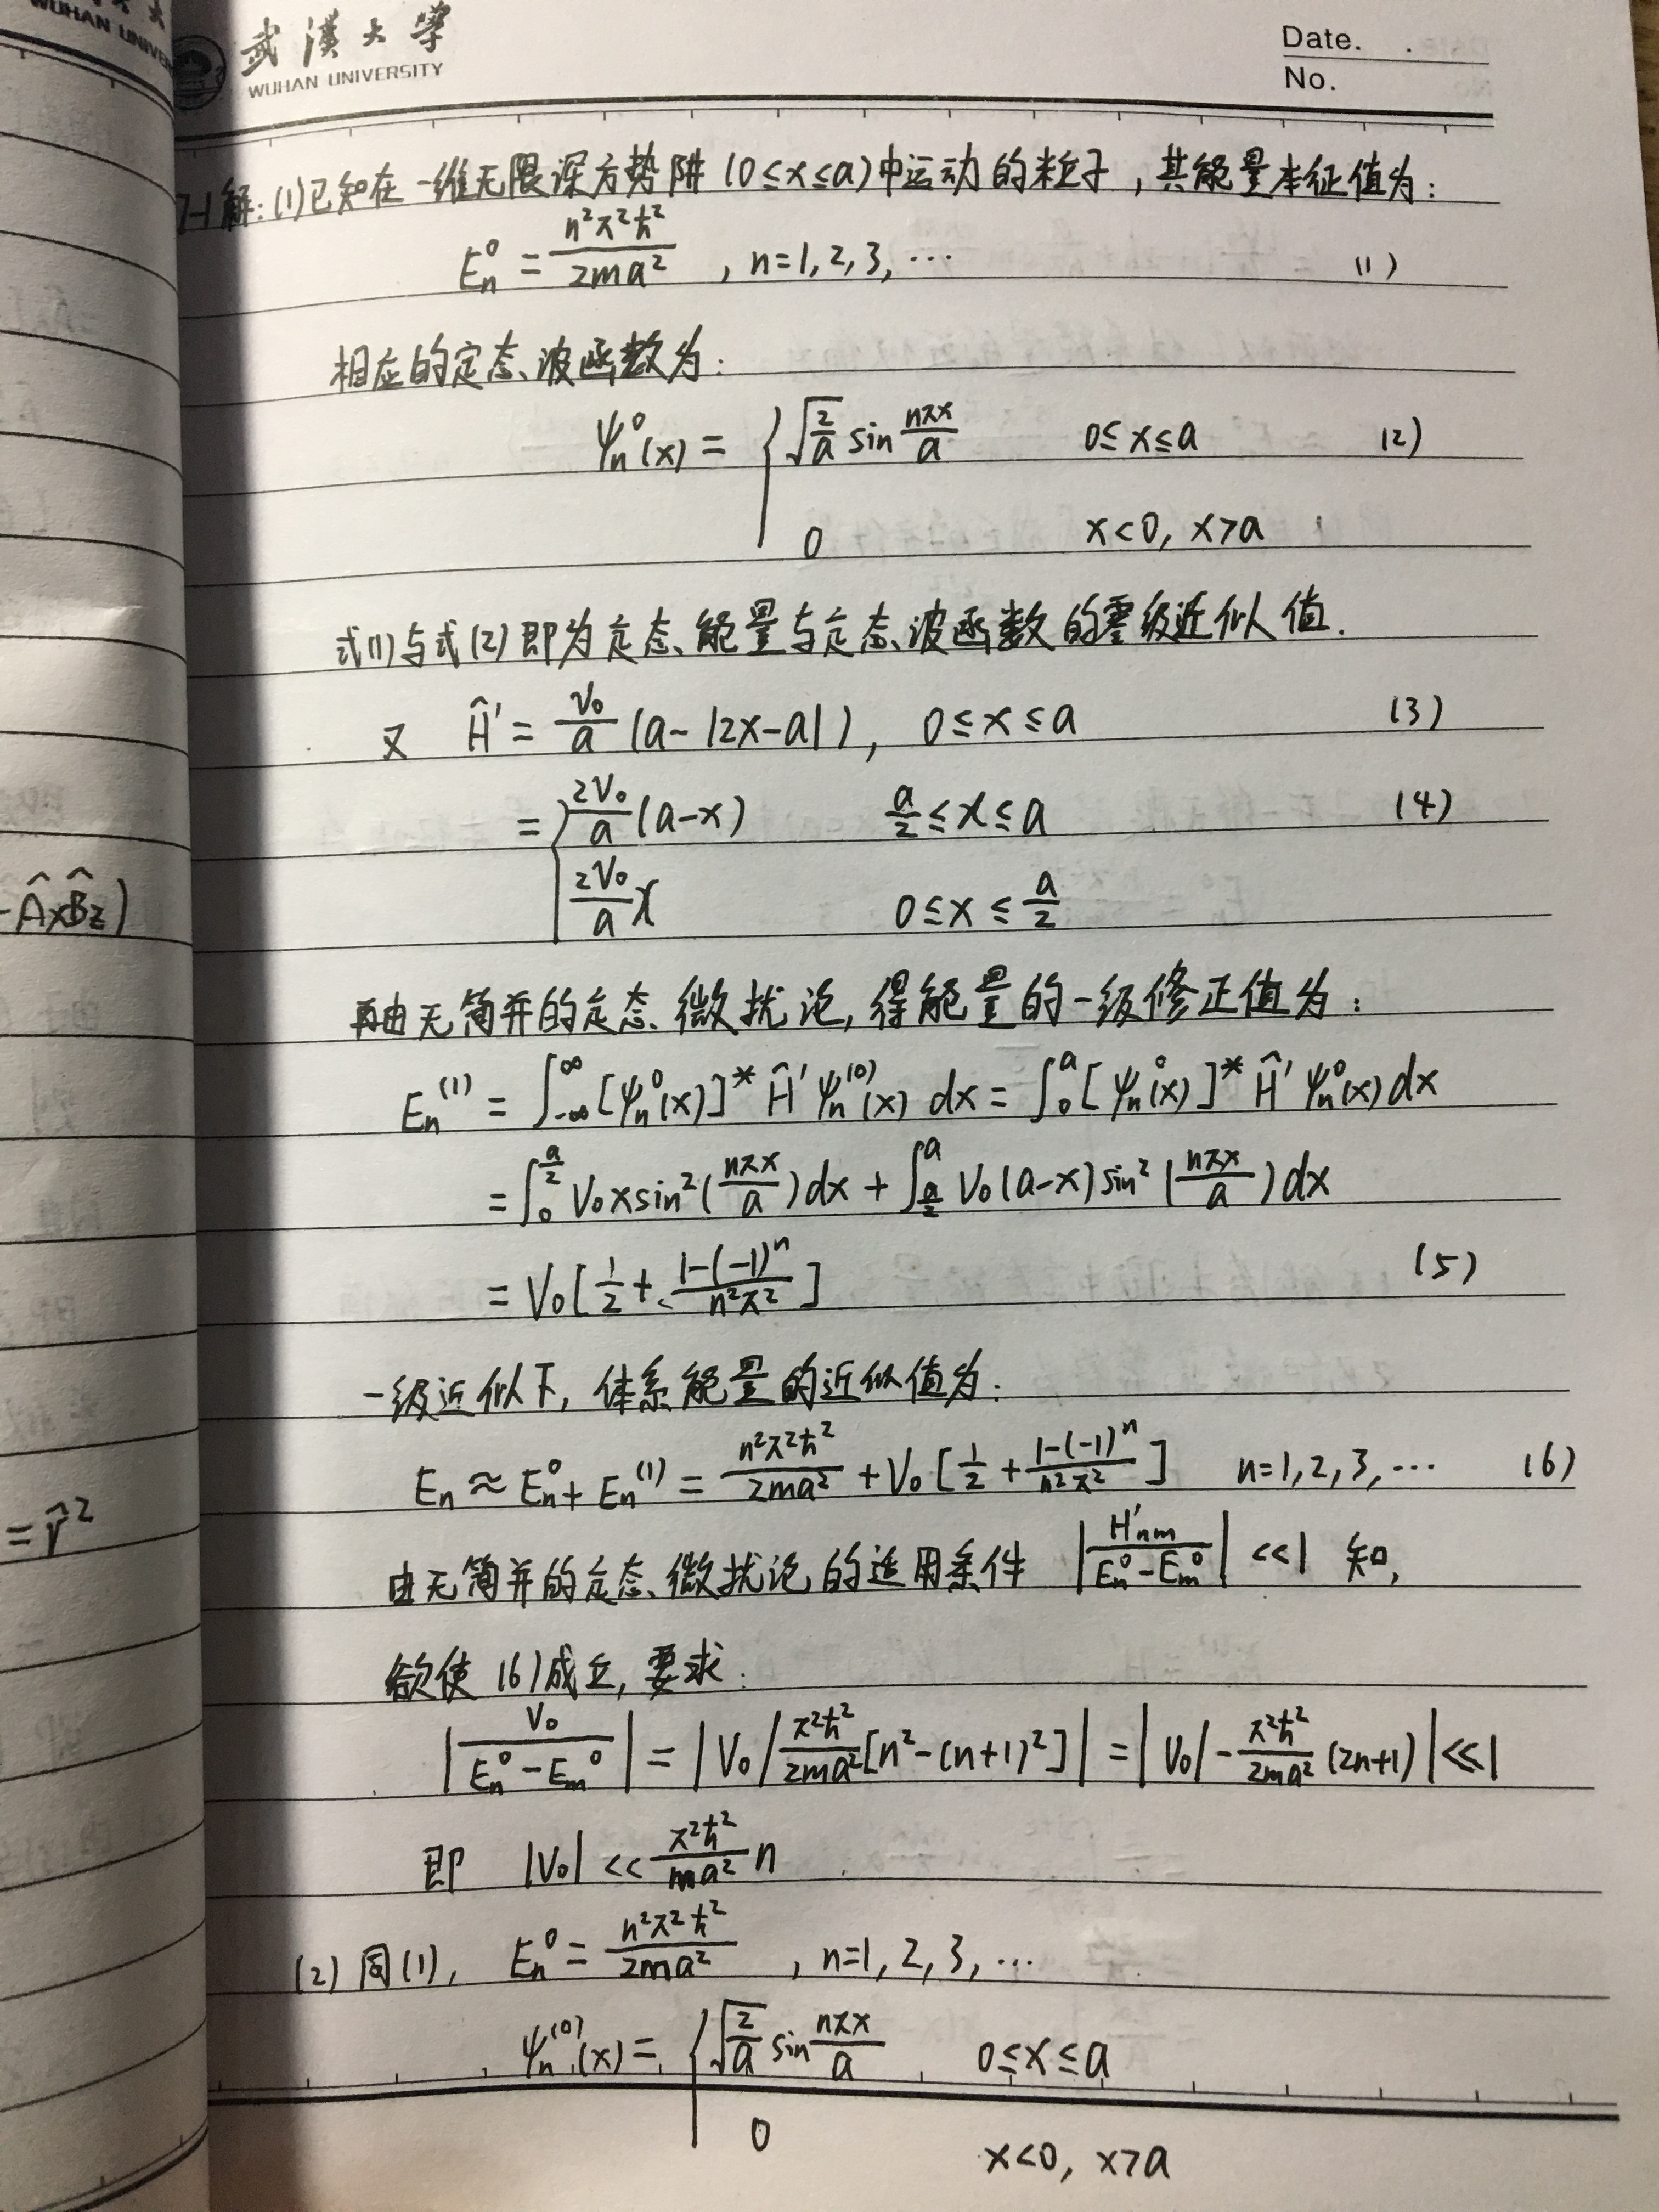 WUHAN UNIVE
武漢大學
WUHAN UNIVERSITY
Date. .
No.
7-1 解: (1) 已知在一维无限深方势阱 (0≤x≤a) 中运动的粒子, 其能量本征值为:
E_n^0 = n²π²ħ²/2ma² , n=1, 2, 3, ⋯ (1)
相应的定态波函数为:
ψ_n^0(x) = { √(2/a) sin nπx/a 0≤x≤a (2)
0 x<0, x>a
式(1)与式(2)即为定态能量与定态波函数的零级近似值.
又 Ĥ' = V₀/a (a-|2x-a|), 0≤x≤a (3)
= { 2V₀/a (a-x) a/2≤x≤a (4)
2V₀/a x 0≤x≤a/2
-ÂxB̂z)
再由无简并的定态微扰论, 得能量的一级修正值为:
E_n^(1) = ∫_{-∞}^{∞} [ψ_n^0(x)]* Ĥ' ψ_n^(0)(x) dx = ∫_0^a [ψ_n^0(x)]* Ĥ' ψ_n^0(x) dx
= ∫_0^{a/2} V₀ x sin²(nπx/a) dx + ∫_{a/2}^a V₀(a-x) sin²(nπx/a) dx
= V₀[1/2 + (1-(-1)^n)/n²π²] (5)
一级近似下, 体系能量的近似值为:
E_n ≈ E_n^0 + E_n^(1) = n²π²ħ²/2ma² + V₀[1/2 + (1-(-1)^n)/n²π²] n=1, 2, 3, ⋯ (6)
= r̂²
由无简并的定态微扰论的适用条件 |H'_nm/(E_n^0 - E_m^0)| <<1 知,
欲使(6)成立, 要求:
|V₀/(E_n^0 - E_m^0)| = |V₀/ π²ħ²/2ma² [n²-(n+1)²]| = |V₀/ -π²ħ²/2ma² (2n+1)| <<1
即 |V₀| << π²ħ²/ma² n
(2) 同(1), E_n^0 = n²π²ħ²/2ma² , n=1, 2, 3, ⋯
ψ_n^(0)(x) = { √(2/a) sin nπx/a 0≤x≤a
0 x<0, x>a